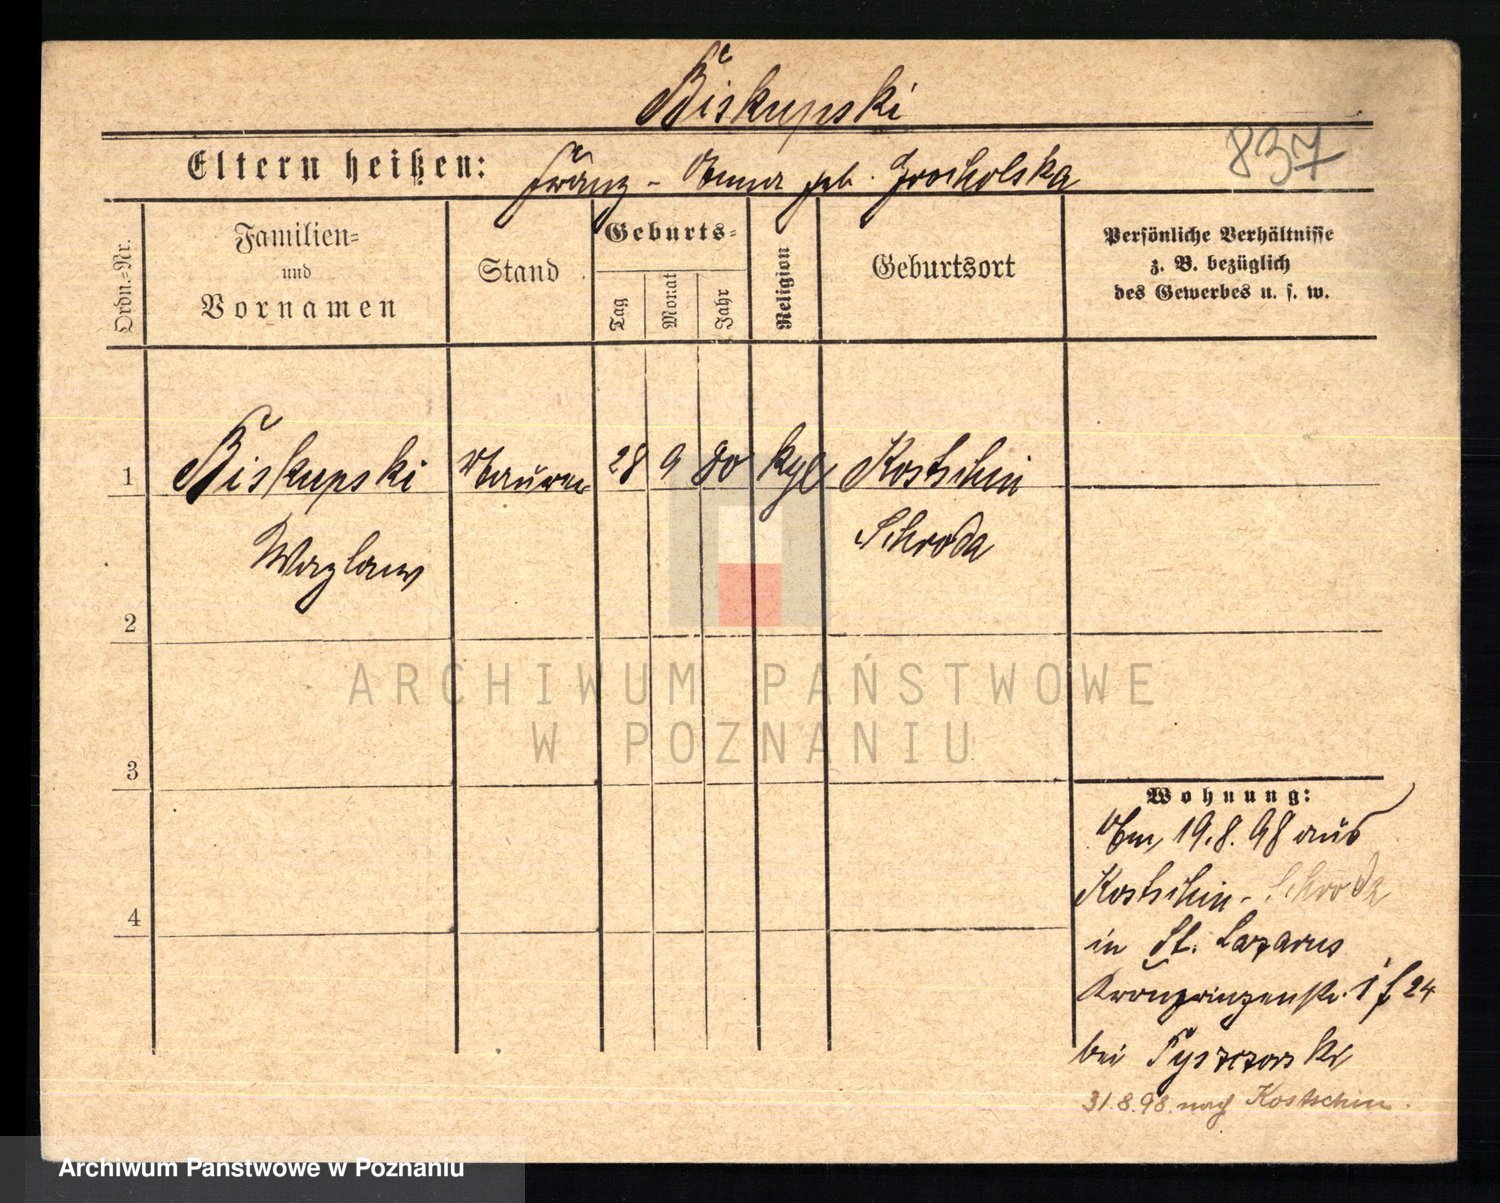 Biskupski
837
Eltern heißen: Franz - Anna geb. Grocholska
Ordn.=Nr.
Familien=
und
Vornamen
Stand
Geburts=
Tag
Monat
Jahr
Religion
Geburtsort
Persönliche Verhältnisse
z. B. bezüglich
des Gewerbes u. s. w.
1 Biskupski Maurer 28 9 80 Kostschin
Wazlaw Schroda
2
ARCHIWUM PAŃSTWOWE
W POZNANIU
3
Wohnung:
Am 19.8.98 aus
4
Kostschin - Schroda
in St. Lazarus
Kronprinzenstr. 24
bei
31.8.98 nach Kostschin.
Archiwum Państwowe w Poznaniu